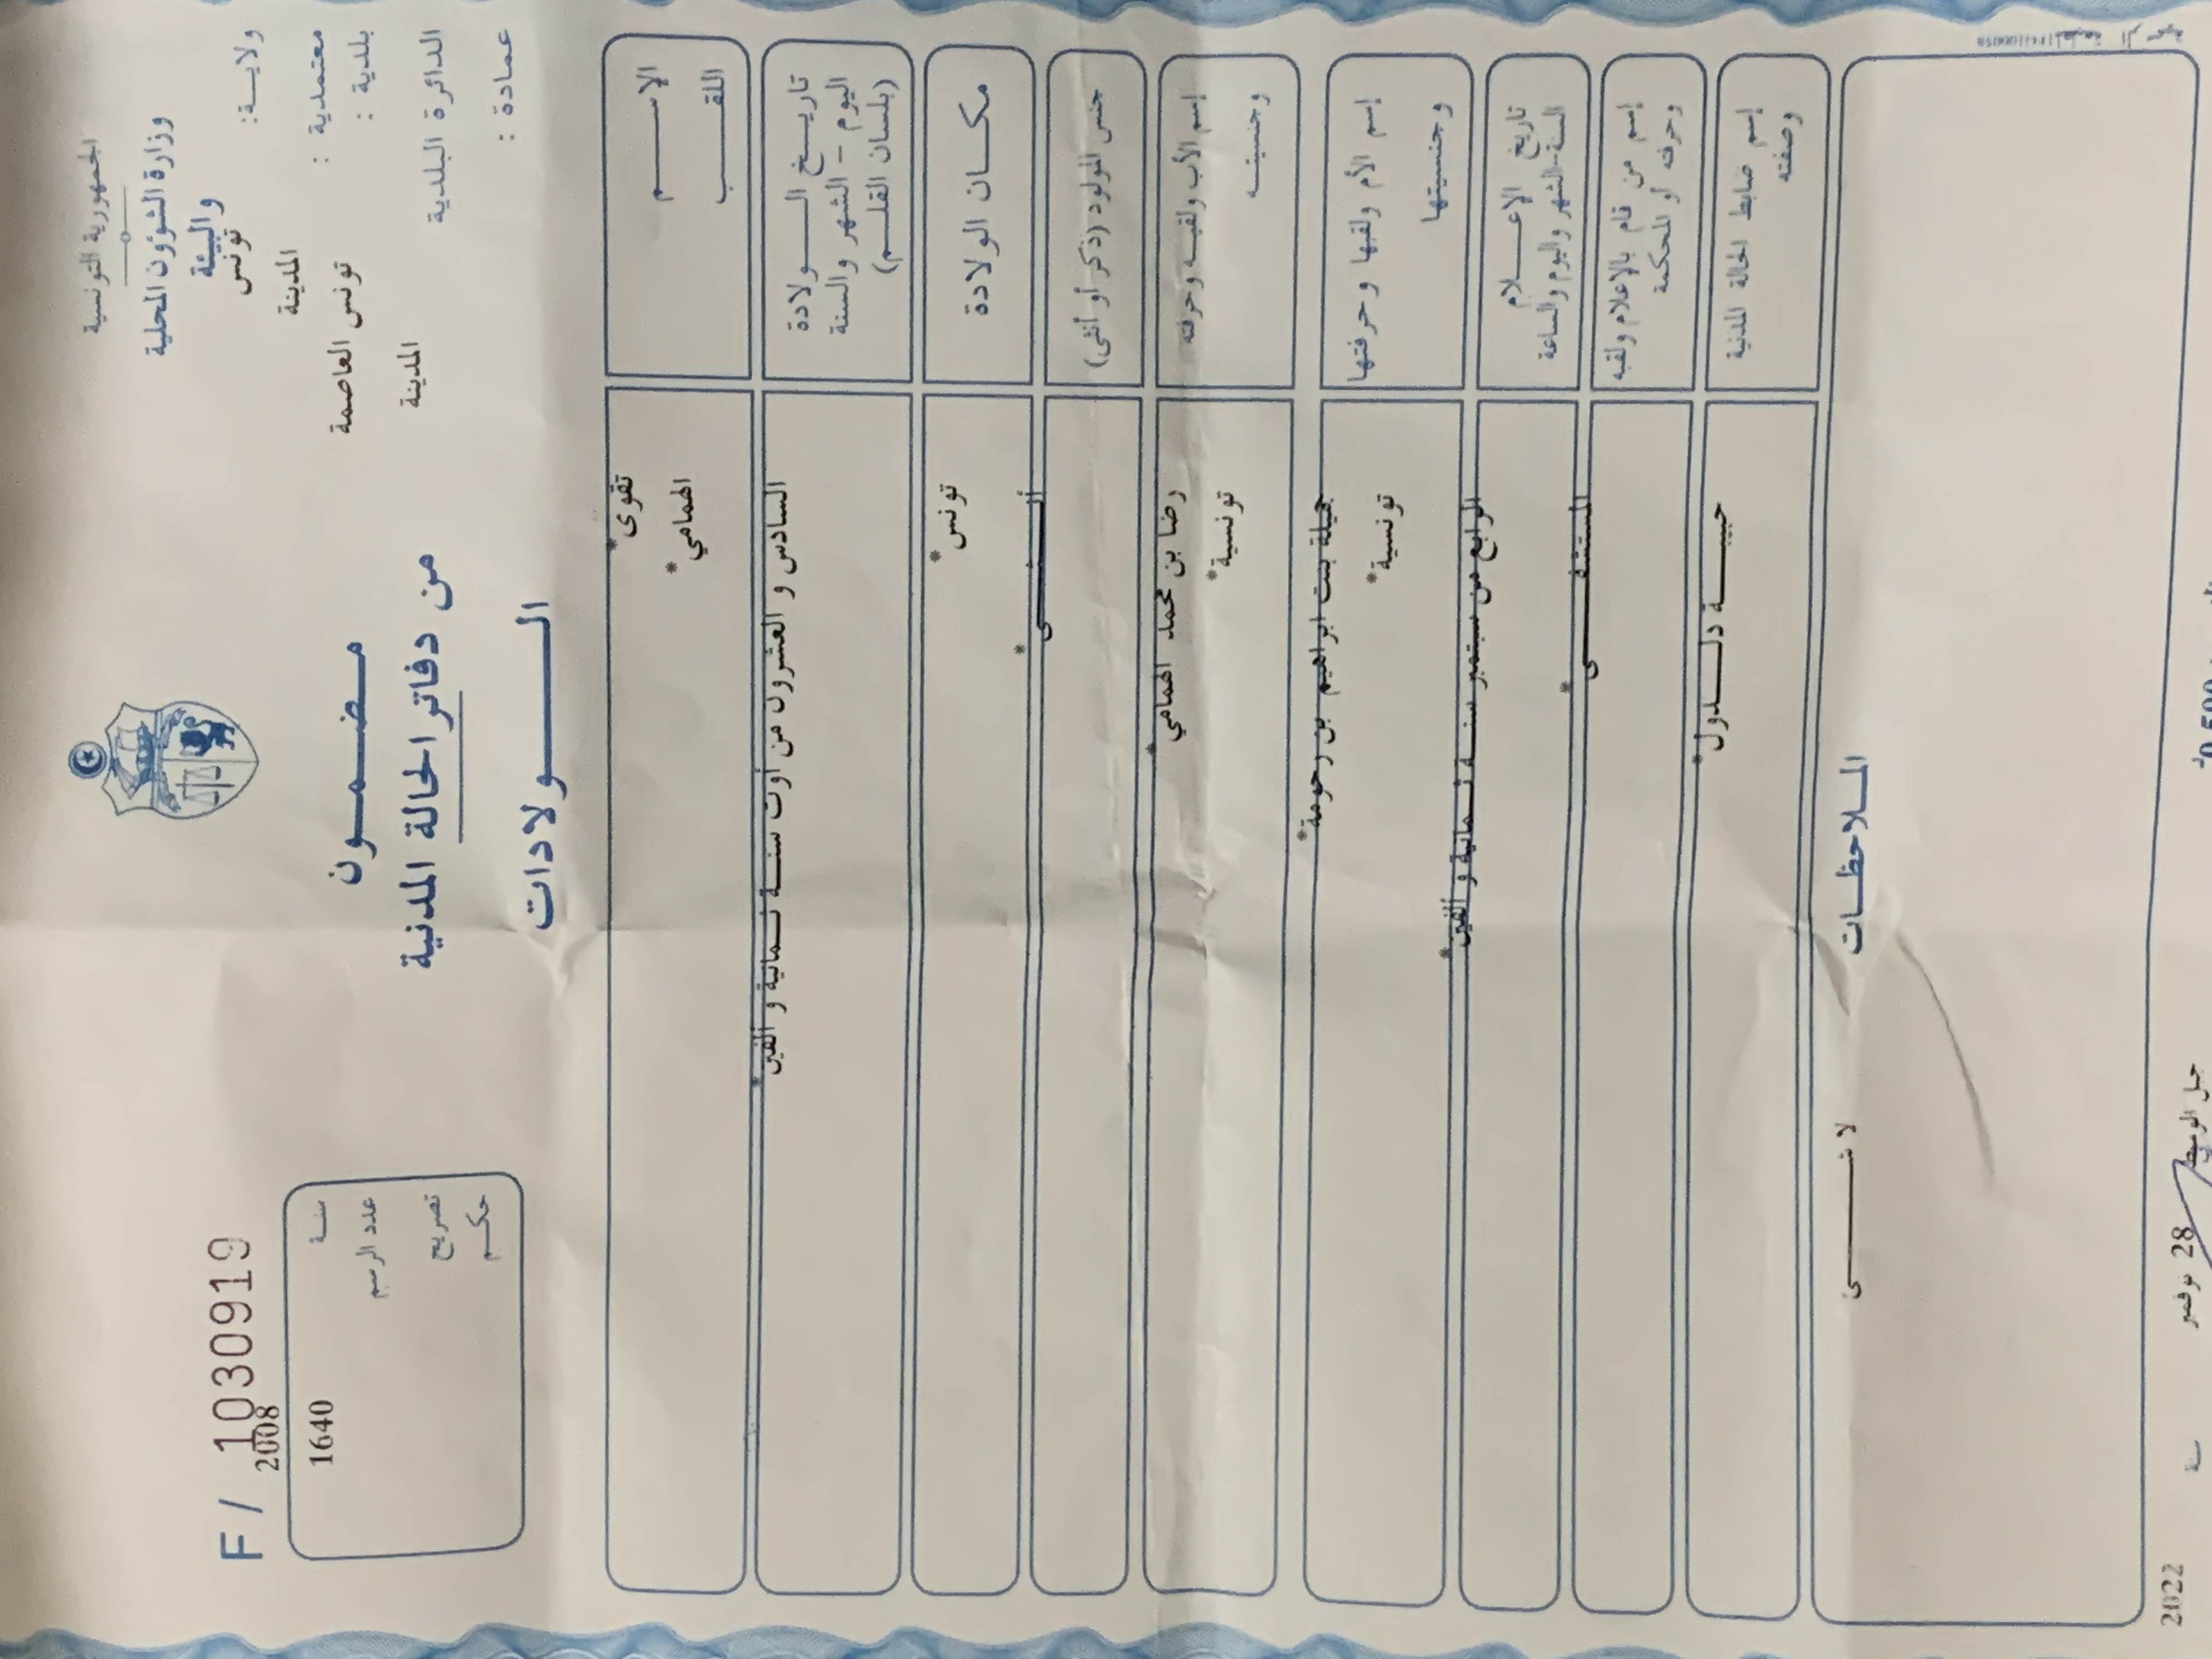 الجمهورية التونسية
وزارة الشؤون المحلية
والبيئة
ولايـــة: تونس
معتمدية : المدينة
بلدية : تونس العاصمة
الدائرة البلدية المدينة
عمادة :
مـضــمــون
من دفاتر الحالة المدنية
الـــــولادات
F / 1030919
2008
سنـــة
1640
عدد الرسم
تصريح
حكـــم
الاســـــم
تقوى*
اللقـــــب
الهمامي*
تاريـــخ الــــولادة
اليوم - الشهر والسنة
(بلسان القلـــم)
السادس و العشرون من أوت سنـــة ثـــمانية و ألفين*
مكـــان الولادة
تونس*
جنس المولود (ذكر أو أنثى)
أنـــــثـــــى*
إسم الأب ولقبـه وحرفته
رضا بن محمد الهمامي*
وجنسيتـــه
تونسية*
إسم الأم ولقبها وحرفتها
جميلة بنت ابراهيم بن رحومة*
وجنسيتها
تونسية*
تاريخ الإعــــلام
السنة-الشهر واليوم والساعة
الرابع من سبتمبر سنـــة ثـــمانية و ألفين*
إسم من قام بالإعلام ولقبه
وحرفته أو المحكمة
المستشفـــــى*
إسم ضابط الحالة المدنية
وصفته
حبيبـــــة دلـــــدول*
المـلاحظـــات
لا شـــــــىء
28 نوفمبر
سنة
2022